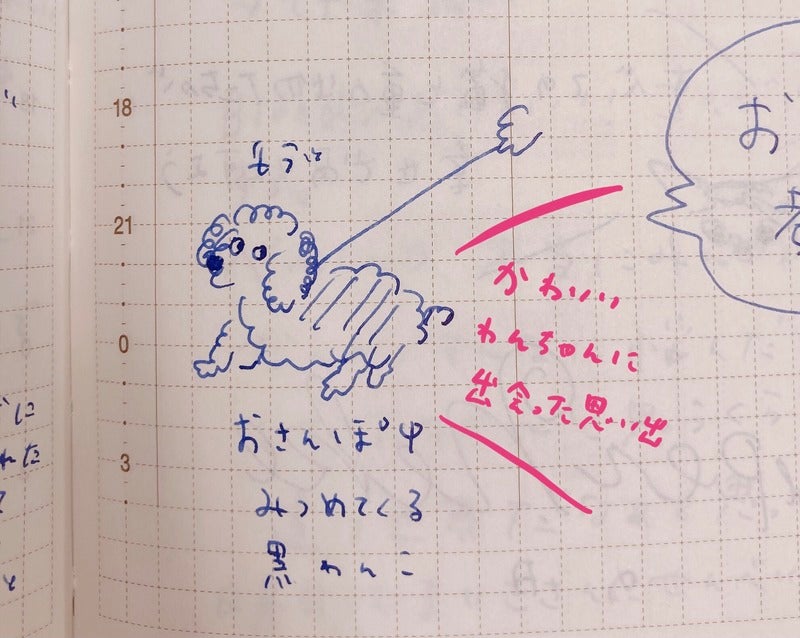 18
21
0
3
おさんぽ中
みつめてくる
黒わんこ
かわいい
わんちゃんに
出会った思い出
お